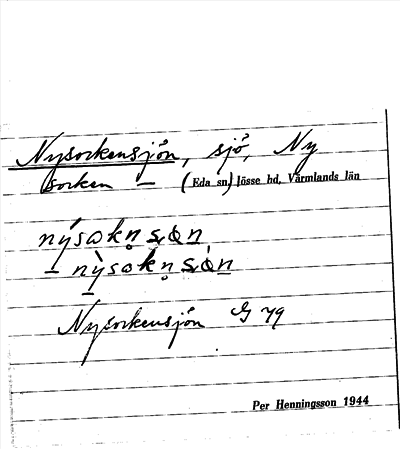 Nysockensjön, sjö, Ny
socken – (Eda sn) Jösse hd, Värmlands län
nýsokn̥ sɷ̀n
– nỳsokn̥ sɷ̀n
Nysockensjön G 79
Per Henningsson 1944